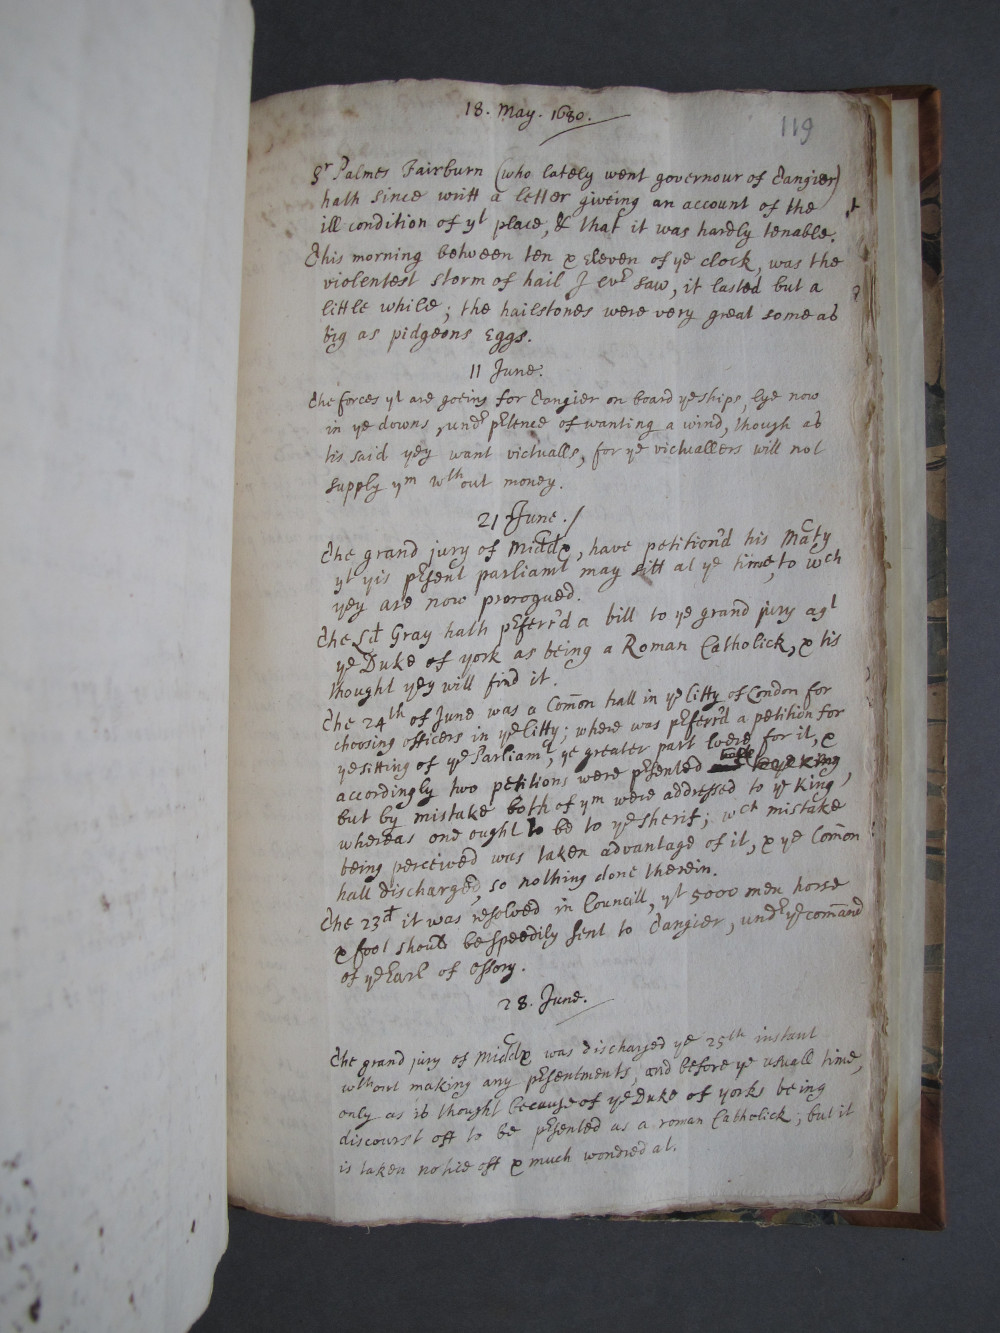 18. May. 1680.
119
Sr Palmes Fairburn (who lately went governour of Tangier)
hath since writt a letter giveing an account of the
ill condition of yt place, & that it was hardly tenable.
This morning between ten & Eleven of ye clock, was the
violentest storm of hail I evr saw, it lasted but a
little while; the hailstones were very great some as
big as pidgeons Eggs.
11 June.
The forces yt are goeing for Tangier on board ye ships, lye now
in ye downs, undr prtence of wanting a wind, though as
tis said yey want victualls, for ye victuallers will not
supply ym wthout money.
21 June.
The grand jury of Middx, have petition'd his Maty
yt yis prsent parliamt may sitt at ye time, to wch
yey are now prorogued.
The Ld Gray hath prferr'd a bill to ye grand jury agt
ye Duke of york as being a Roman Catholick, & tis
thought yey will find it.
The 24th of June was a Comon hall in ye Citty of London for
choosing officers in ye Citty; where was prferr'd a petition for
ye sitting of ye Parliamt, ye greater part were for it, &
accordingly two petitions were prsented both to ye King,
but by mistake both of ym were addressed to ye King,
whereas one ought to be to ye sherif; wch mistake
being perceived was taken advantage of it, & ye Comon
hall discharged, so nothing done therein.
The 23d it was resolved in Councill, yt 5000 men horse
& foot should be speedily sent to Tangier, undr ye comand
of ye Earl of Ossory.
28. June.
The grand jury of Middx was discharged ye 25th instant
wthout making any prsentments, and before ye usuall time,
only as is thought because of ye Duke of yorks being
discourst off to be prsented as a roman Catholick; but it
is taken notice off & much wondred at.